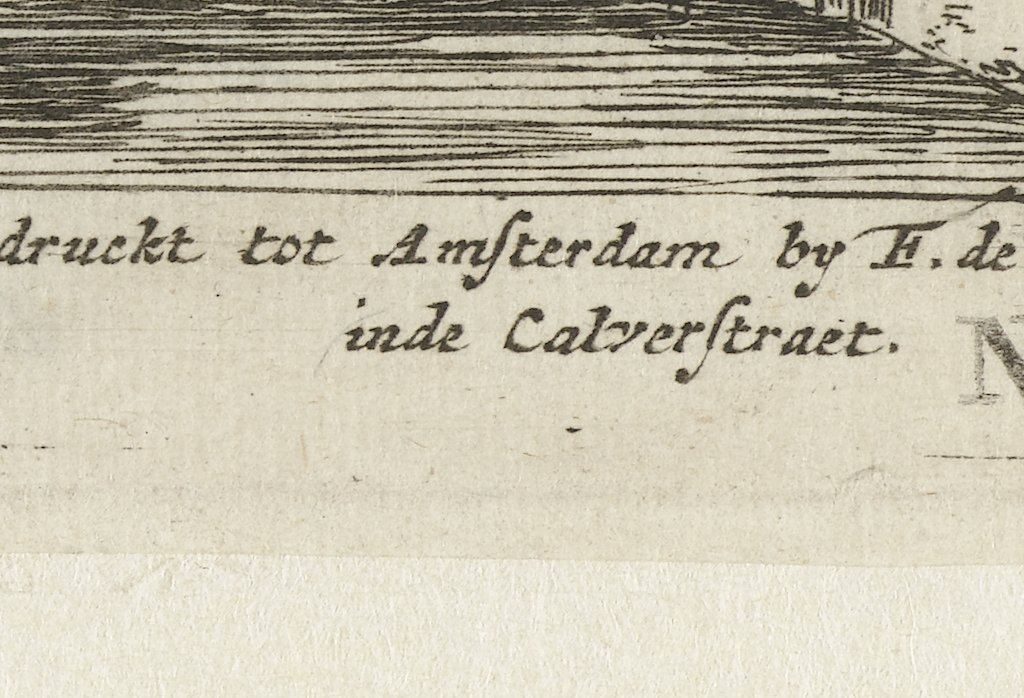 druckt tot Amſterdam by F. de
inde Calverſtraet.
N